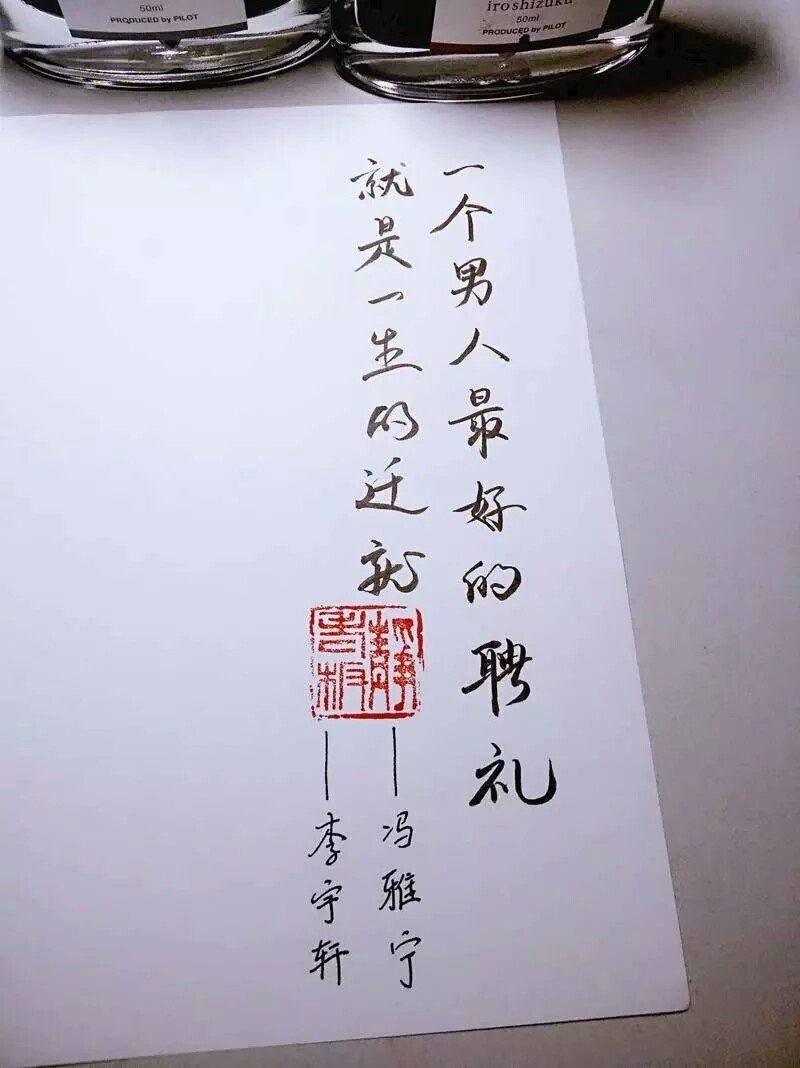 50ml
PRODUCED by PILOT
iroshizuku
50ml
PRODUCED by PILOT
一个男人最好的聘礼
就是一生的迁就
——冯雅宁
——李宇轩